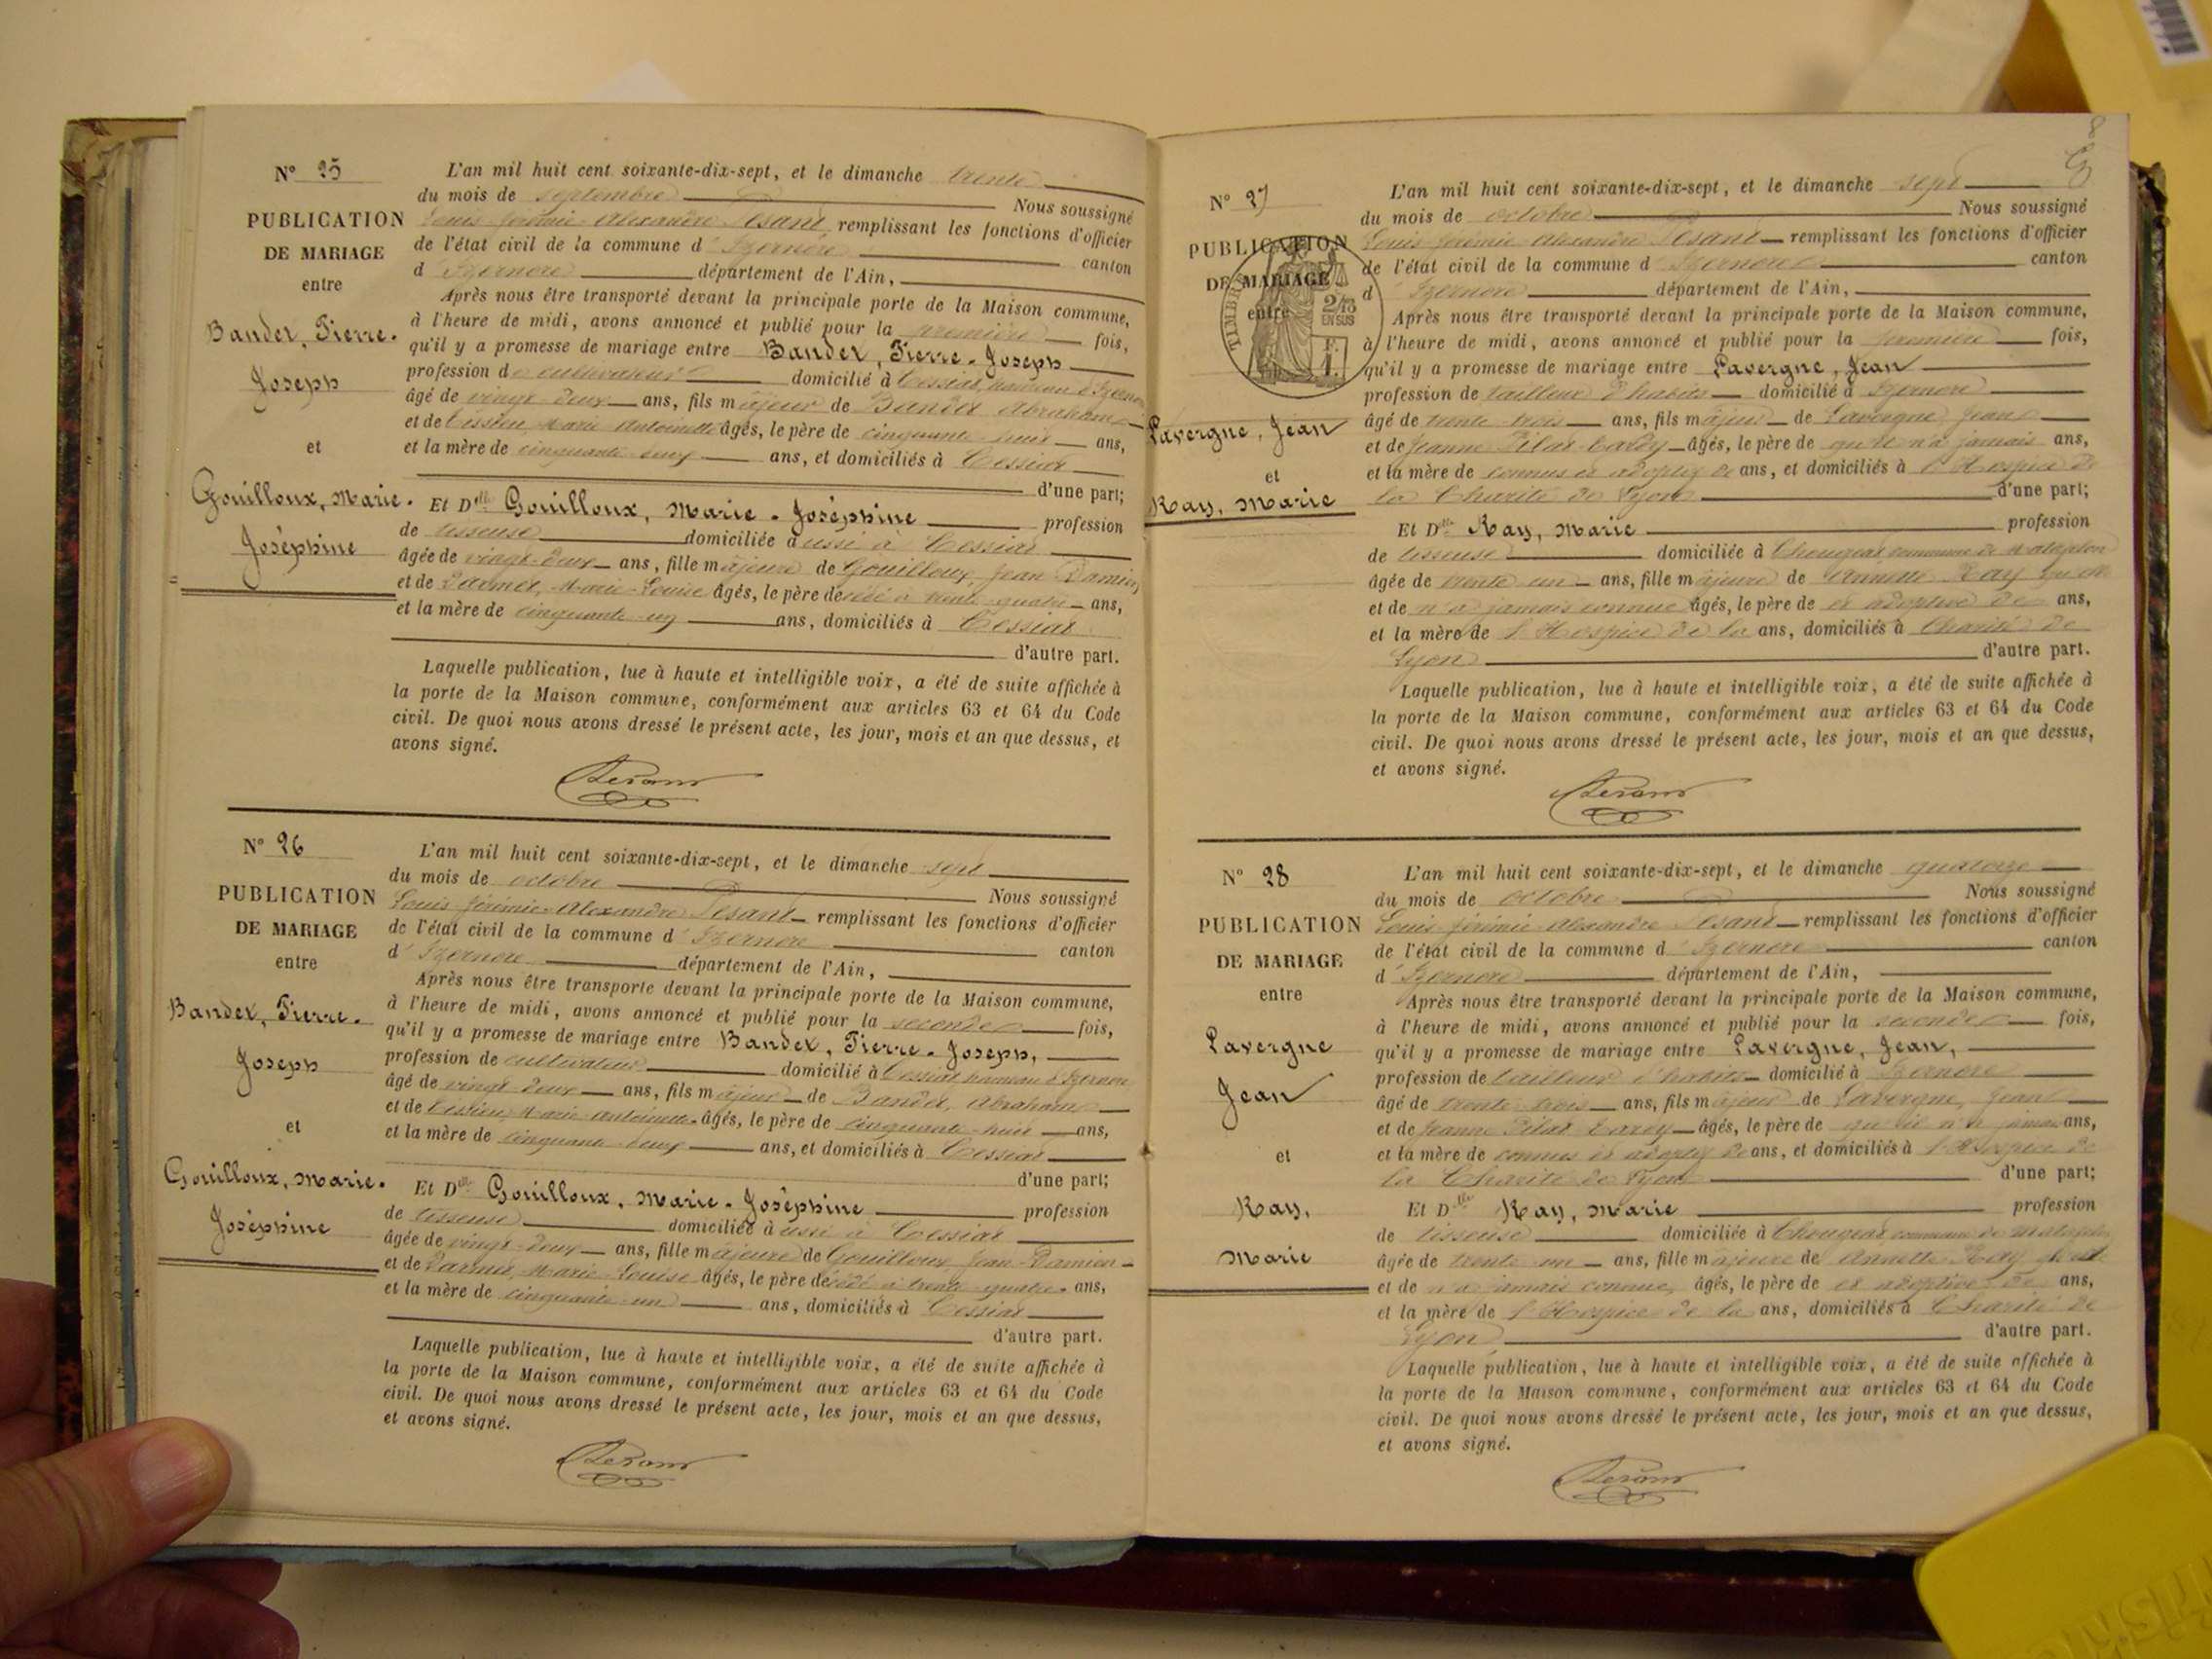 N° 25
PUBLICATION
DE MARIAGE
entre
Bandet, Pierre-
Joseph
et
Gouilloux, Marie-
Joséphine
L'an mil huit cent soixante-dix-sept, et le dimanche trente
du mois de septembre Nous soussigné
Louis Jérémie Alexandre Pesant, remplissant les fonctions d'officier
de l'état civil de la commune d'Izernore canton
d'Izernore département de l'Ain,
Après nous être transporté devant la principale porte de la Maison commune,
à l'heure de midi, avons annoncé et publié pour la première fois,
qu'il y a promesse de mariage entre Bandet, Pierre-Joseph
profession de cultivateur domicilié à Cessiat, hameau d'Izernore
âgé de vingt-deux ans, fils majeur de Bandet Abraham
et de Marie Antoinette âgés, le père de cinquante huit ans,
et la mère de cinquante deux ans, et domiciliés à Cessiat
d'une part;
Et Dlle Gouilloux, Marie-Joséphine profession
de tisseuse domiciliée aussi à Cessiat
âgée de vingt-deux ans, fille majeure de Gouilloux, Jean Damien,
et de Marie-Louise âgés, le père décédé à trente-quatre ans,
et la mère de cinquante un ans, domiciliés à Cessiat
d'autre part.
Laquelle publication, lue à haute et intelligible voix, a été de suite affichée à
la porte de la Maison commune, conformément aux articles 63 et 64 du Code
civil. De quoi nous avons dressé le présent acte, les jour, mois et an que dessus, et
avons signé.
Pesant
N° 26
PUBLICATION
DE MARIAGE
entre
Bandet, Pierre-
Joseph
et
Gouilloux, Marie-
Joséphine
L'an mil huit cent soixante-dix-sept, et le dimanche sept
du mois de octobre Nous soussigné
Louis Jérémie Alexandre Pesant remplissant les fonctions d'officier
de l'état civil de la commune d'Izernore canton
d'Izernore département de l'Ain,
Après nous être transporté devant la principale porte de la Maison commune,
à l'heure de midi, avons annoncé et publié pour la seconde fois,
qu'il y a promesse de mariage entre Bandet, Pierre-Joseph,
profession de cultivateur domicilié à Cessiat hameau d'Izernore
âgé de vingt-deux ans, fils majeur de Bandet, Abraham
et de Marie Antoinette âgés, le père de cinquante-huit ans,
et la mère de cinquante-deux ans, et domiciliés à Cessiat
d'une part;
Et Dlle Gouilloux, Marie-Joséphine profession
de tisseuse domiciliée aussi à Cessiat
âgée de vingt-deux ans, fille majeure de Gouilloux Jean-Damien
et de Marie-Louise âgés, le père décédé à trente-quatre ans,
et la mère de cinquante-un ans, domiciliés à Cessiat
d'autre part.
Laquelle publication, lue à haute et intelligible voix, a été de suite affichée à
la porte de la Maison commune, conformément aux articles 63 et 64 du Code
civil. De quoi nous avons dressé le présent acte, les jour, mois et an que dessus,
et avons signé.
Pesant
8
N° 27
PUBLICATION
DE MARIAGE
entre
TIMBRE
2/10
EN SUS
F.
1.
Lavergne, Jean
et
Ray, Marie
L'an mil huit cent soixante-dix-sept, et le dimanche sept
du mois de octobre Nous soussigné
Louis Jérémie Alexandre Pesant remplissant les fonctions d'officier
de l'état civil de la commune d'Izernore canton
d'Izernore département de l'Ain,
Après nous être transporté devant la principale porte de la Maison commune,
à l'heure de midi, avons annoncé et publié pour la première fois,
qu'il y a promesse de mariage entre Lavergne, Jean
profession de tailleur d'habits domicilié à Izernore
âgé de trente-trois ans, fils majeur de Lavergne Jean
et de Jeanne âgés, le père de qu'il n'a jamais ans,
et la mère de connus et adoptif de ans, et domiciliés à l'Hospice de
la Charité de Lyon d'une part;
Et Dlle Ray, Marie profession
de tisseuse domiciliée à Chougeat commune de Matafelon
âgée de trente-un ans, fille majeure de Annette Ray qu'elle
et de n'a jamais connue âgés, le père de et adoptive de ans,
et la mère de l'Hospice de la ans, domiciliés à Charité de
Lyon d'autre part.
Laquelle publication, lue à haute et intelligible voix, a été de suite affichée à
la porte de la Maison commune, conformément aux articles 63 et 64 du Code
civil. De quoi nous avons dressé le présent acte, les jour, mois et an que dessus,
et avons signé.
Pesant
N° 28
PUBLICATION
DE MARIAGE
entre
Lavergne
Jean
et
Ray,
Marie
L'an mil huit cent soixante-dix-sept, et le dimanche quatorze
du mois de octobre Nous soussigné
Louis Jérémie Alexandre Pesant remplissant les fonctions d'officier
de l'état civil de la commune d'Izernore canton
d'Izernore département de l'Ain,
Après nous être transporté devant la principale porte de la Maison commune,
à l'heure de midi, avons annoncé et publié pour la seconde fois,
qu'il y a promesse de mariage entre Lavergne, Jean,
profession de tailleur d'habits domicilié à Izernore
âgé de trente-trois ans, fils majeur de Lavergne, Jean
et de Jeanne âgés, le père de qu'il n'a jamais ans,
et la mère de connus et adoptif de ans, et domiciliés à l'Hospice de
la Charité de Lyon d'une part;
Et Dlle Ray, Marie profession
de tisseuse domiciliée à Chougeat commune de Matafelon
âgée de trente-un ans, fille majeure de Annette Ray qu'elle
et de n'a jamais connue, âgés, le père de et adoptive de ans,
et la mère de l'Hospice de la ans, domiciliés à Charité de
Lyon, d'autre part.
Laquelle publication, lue à haute et intelligible voix, a été de suite affichée à
la porte de la Maison commune, conformément aux articles 63 et 64 du Code
civil. De quoi nous avons dressé le présent acte, les jour, mois et an que dessus,
et avons signé.
Pesant